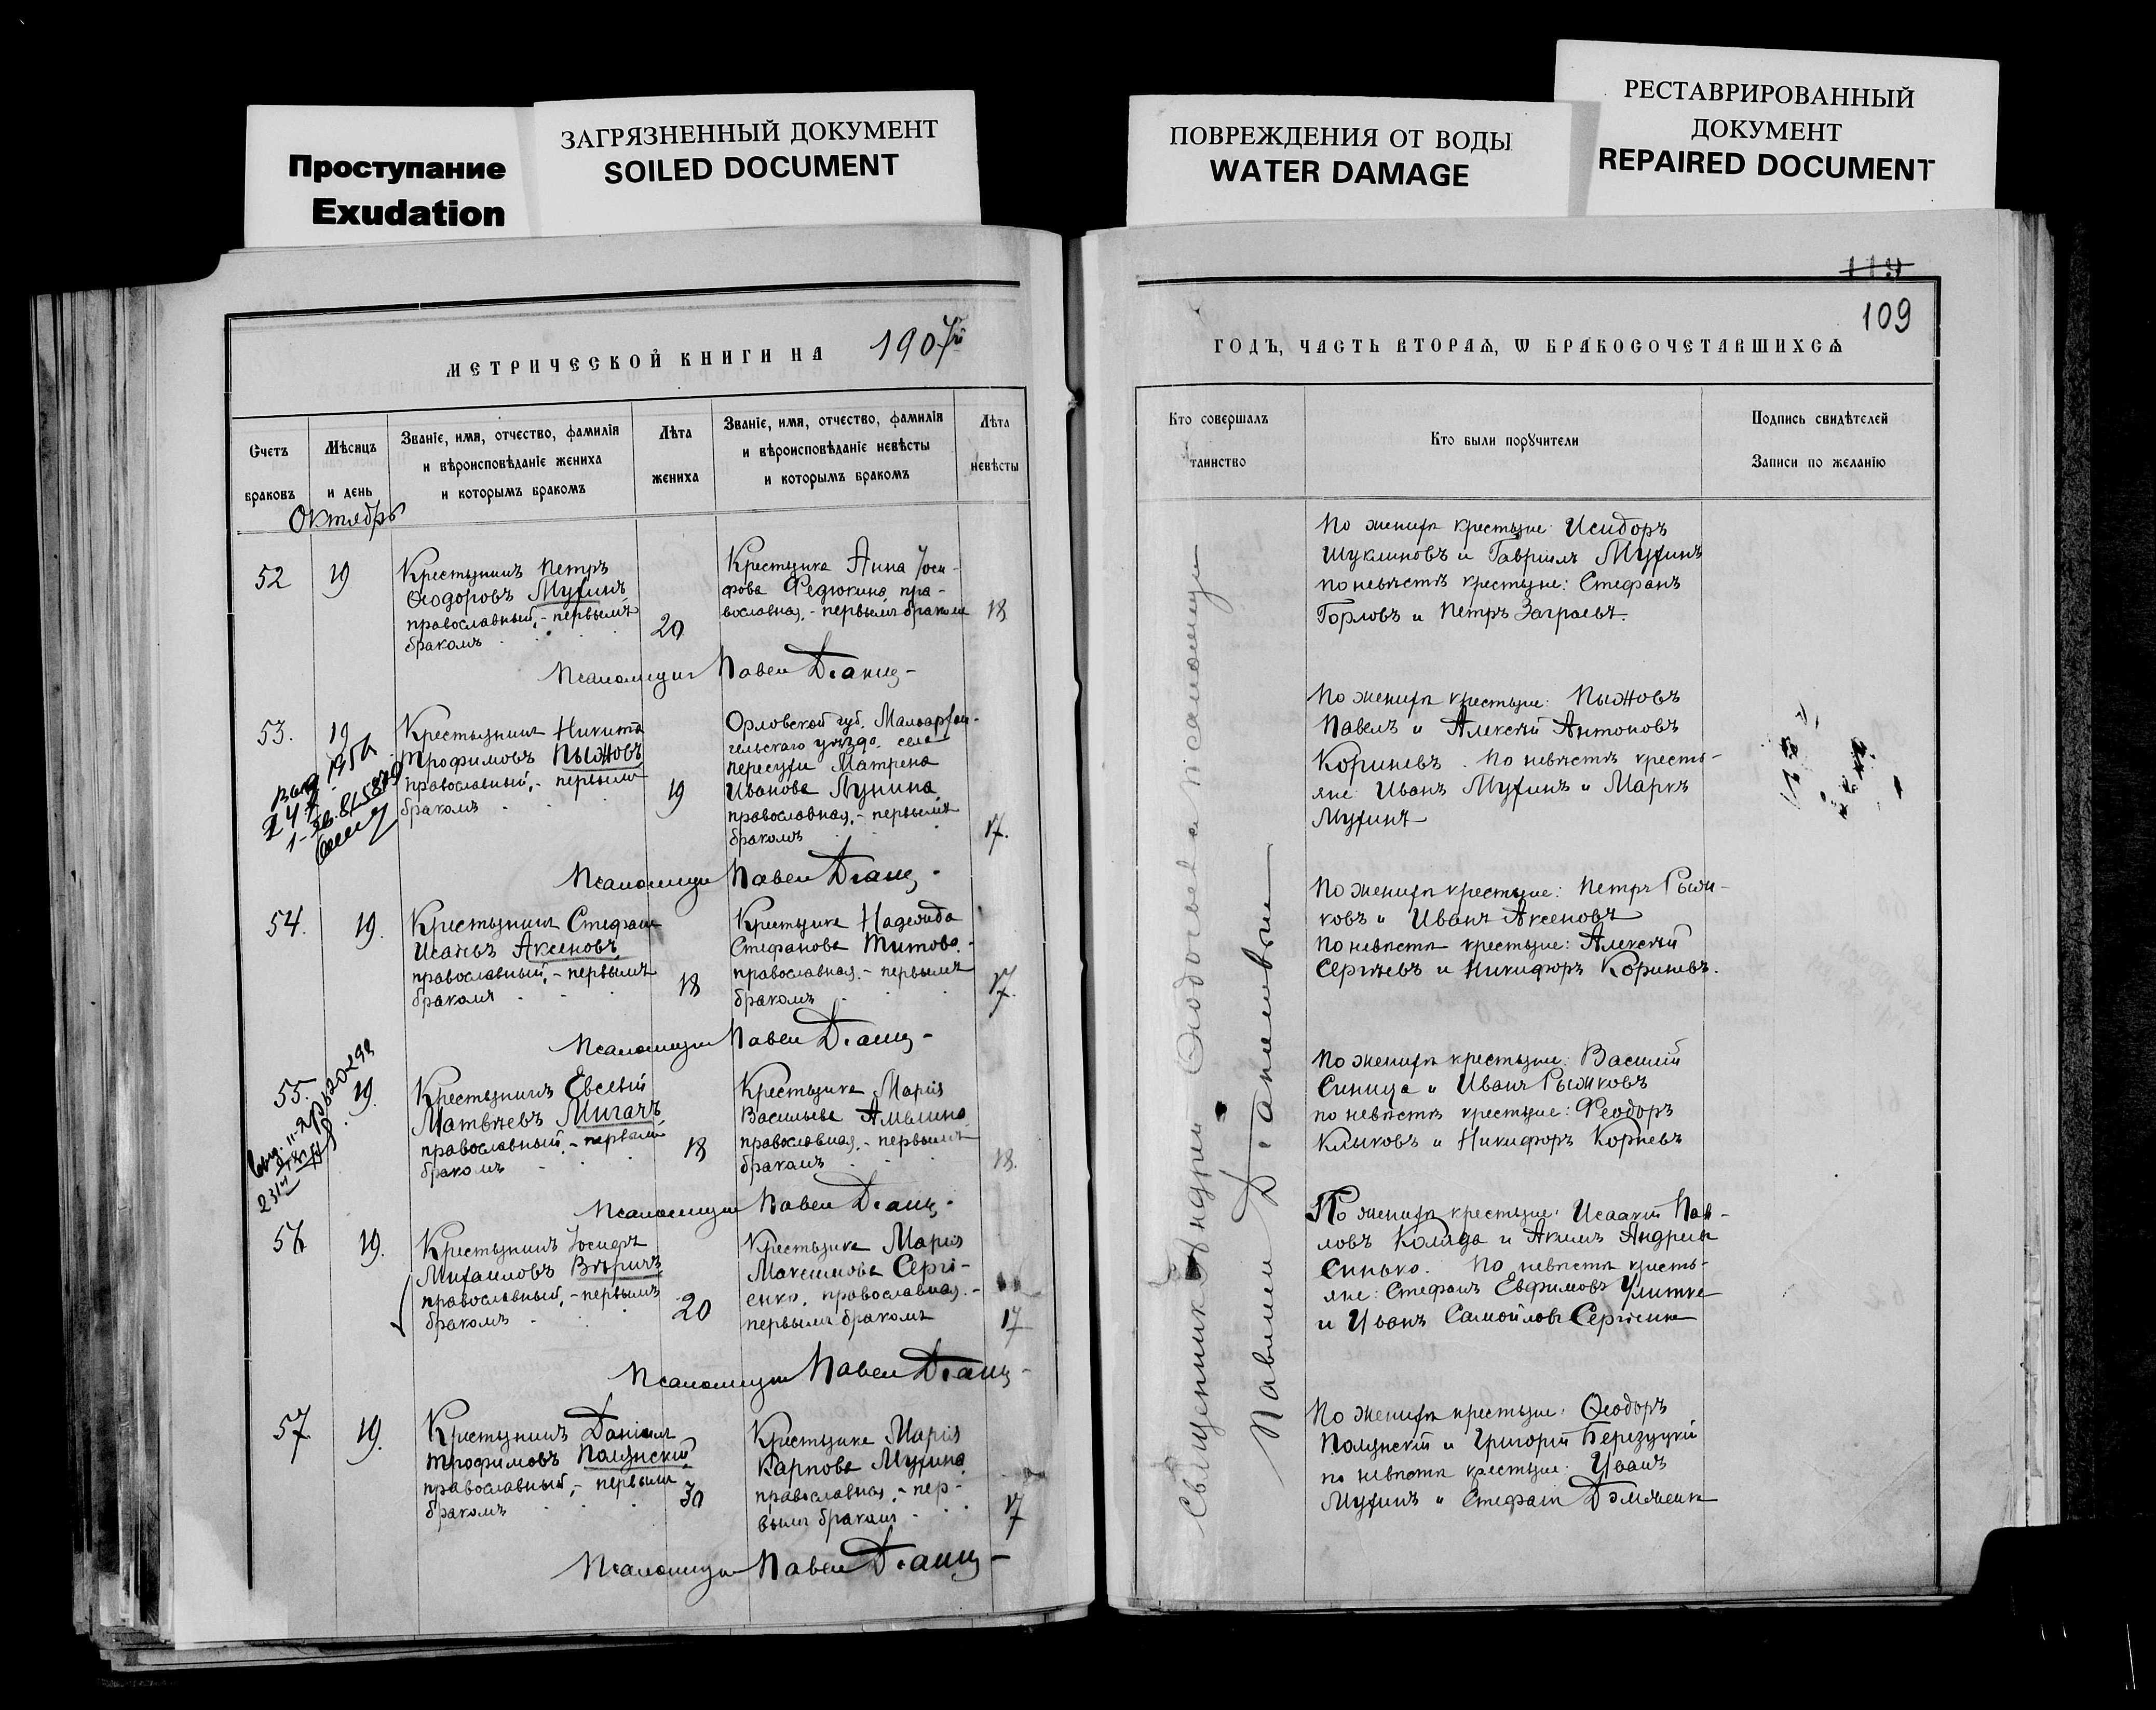 Проступание
Exudation
ЗАГРЯЗНЕННЫЙ ДОКУМЕНТ
SOILED DOCUMENT
ПОВРЕЖДЕНИЯ ОТ ВОДЫ
WATER DAMAGE
РЕСТАВРИРОВАННЫЙ
ДОКУМЕНТ
REPAIRED DOCUMENT
МЕТРИЧЕСКОЙ КНИГИ НА 1907й
Счетъ
браковъ
Мѣсяцъ
и день
Званіе, имя, отчество, фамилія
и вѣроисповѣданіе жениха
и которымъ бракомъ
Лѣта
жениха
Званіе, имя, отчество, фамилія
и вѣроисповѣданіе невѣсты
и которымъ бракомъ
Лѣта
невѣсты
Октябрь
52
19
Крестьянинъ Петръ
Ѳеодоровъ Мухинъ
православный, - первымъ
бракомъ
20
Крестьянка Анна Іоси-
фова Федюкина, пра-
вославная, - первымъ бракомъ
18
Псаломщикъ Павелъ
53.
19
Крестьянинъ Никита
Трофимовъ Пыжовъ
православный, - первымъ
бракомъ
19
Орловской губ. Малоархан-
гельскаго уѣзда, села
Пересухи Матрена
Иванова Лунина
православная, - первымъ
бракомъ
17.
Псаломщикъ Павелъ
54.
19.
Крестьянинъ Стефанъ
Исаевъ Аксеновъ
православный, - первымъ
бракомъ
18
Крестьянка Надежда
Стефанова Титова
православная, - первымъ
бракомъ
17.
Псаломщикъ Павелъ
55.
19.
Крестьянинъ Евсевій
Матвѣевъ Мигачъ
православный, - первымъ
бракомъ
18
Крестьянка Марія
Васильева Амелина
православная, - первымъ
бракомъ
18.
Псаломщикъ Павелъ
56
19.
Крестьянинъ Іосифъ
Михаиловъ
православный, - первымъ
бракомъ
20
Крестьянка Марія
Максимова Сергі-
енко, православная, -
первымъ бракомъ
17
Псаломщикъ Павелъ
57
19.
Крестьянинъ Даніилъ
Трофимовъ
православный, - первымъ
бракомъ
30
Крестьянка Марія
Карпова Мухина
православная, - пер-
вымъ бракомъ
17
Псаломщикъ Павелъ
119
109
ГОДЪ, ЧАСТЬ ВТОРАЯ, Ѡ БРАКОСОЧЕТАВШИХСЯ
Кто совершалъ
таинство
Кто были поручители
Подпись свидѣтелей
Записи по желанію
Священникъ Андрей
Павломъ
По женихѣ крестьяне: Исидоръ
Шуклиновъ и Гавріилъ Мухинъ
по невѣстѣ крестьяне: Стефанъ
Горловъ и Петръ
По женихѣ крестьяне: Пыжовъ
Павелъ и Алексѣй Антоновъ
Кориневъ. По невѣстѣ кресть-
яне: Иванъ Мухинъ и Маркъ
Мухинъ
По женихѣ крестьяне: Петръ Рыж-
ковъ и Иванъ Аксеновъ
по невѣстѣ крестьяне: Алексѣй
Сергѣевъ и Никифоръ Кориневъ.
По женихѣ крестьяне: Василій
Синица и Иванъ Рыжковъ
по невѣстѣ крестьяне: Феодоръ
Клыковъ и Никифоръ Корневъ
По женихѣ крестьяне: Исаакій Пав-
ловъ Коляда и Акимъ Андреевъ
Синько. По невѣстѣ кресть-
яне: Стефанъ Евфимовъ Улитка
и Иванъ Самойловъ Сергіенко
По женихѣ крестьяне: Ѳеодоръ
и Григорій Березуцкій
по невѣстѣ крестьяне: Иванъ
Мухинъ и Стефанъ